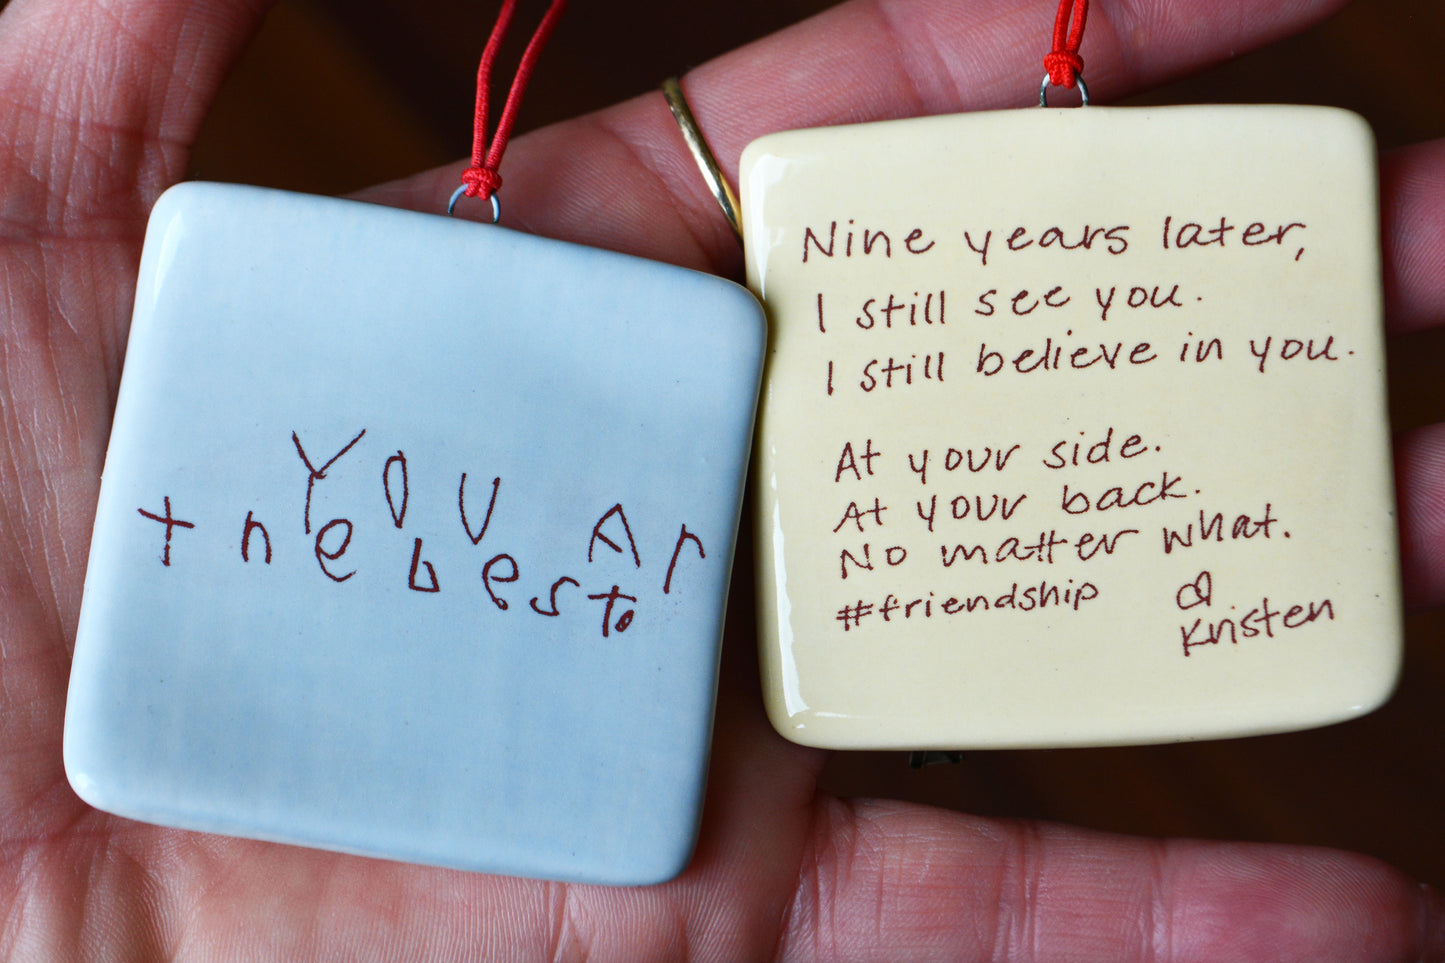 YOU Ar
the best.
Nine years later,
I still see you.
I still believe in you.
At your side.
At your back.
No matter what.
#friendship
Kristen